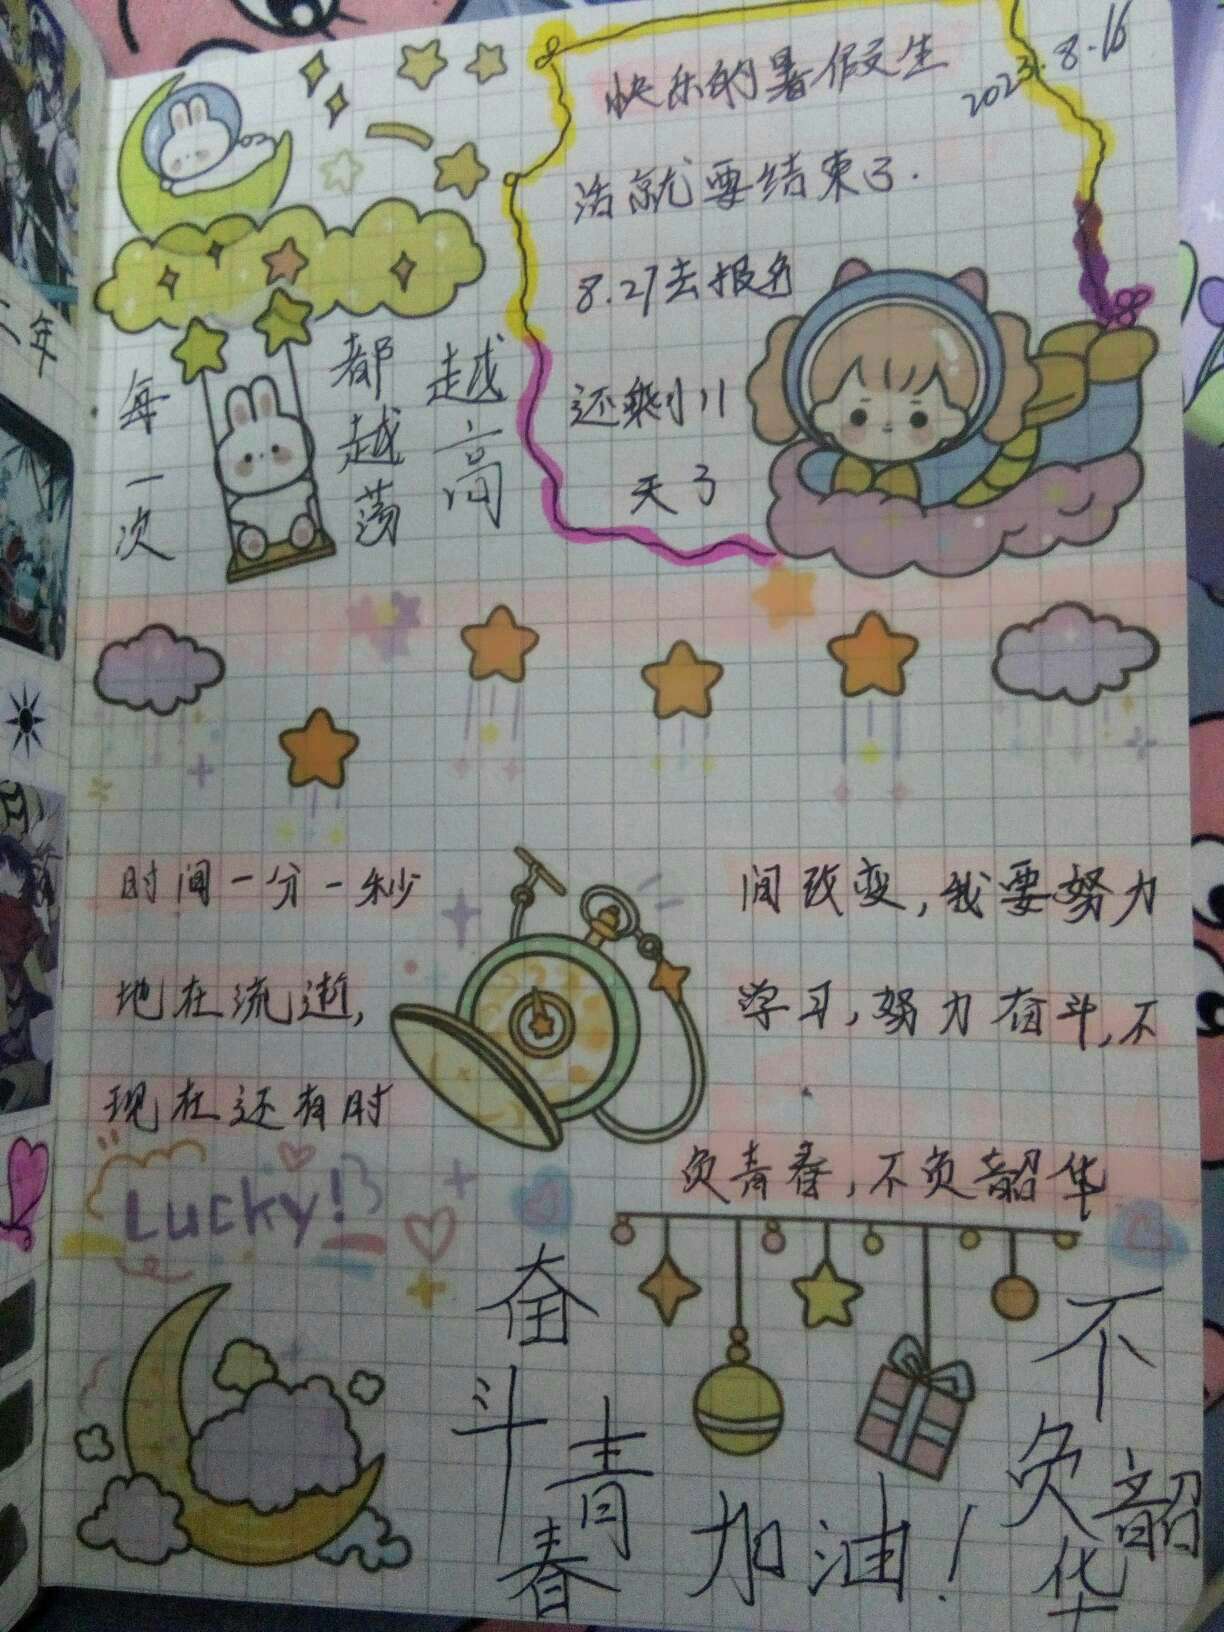 2023.8.16
快乐的暑假生
活就要结束了.
8.27去报名
还剩小11
天了
每一次
都越荡
越高
二年
时间一分一秒
地在流逝,
现在还有时
间改变,我要努力
学习,努力奋斗,不
负青春,不负韶华
Lucky!
奋斗青春
加油!
不负韶华